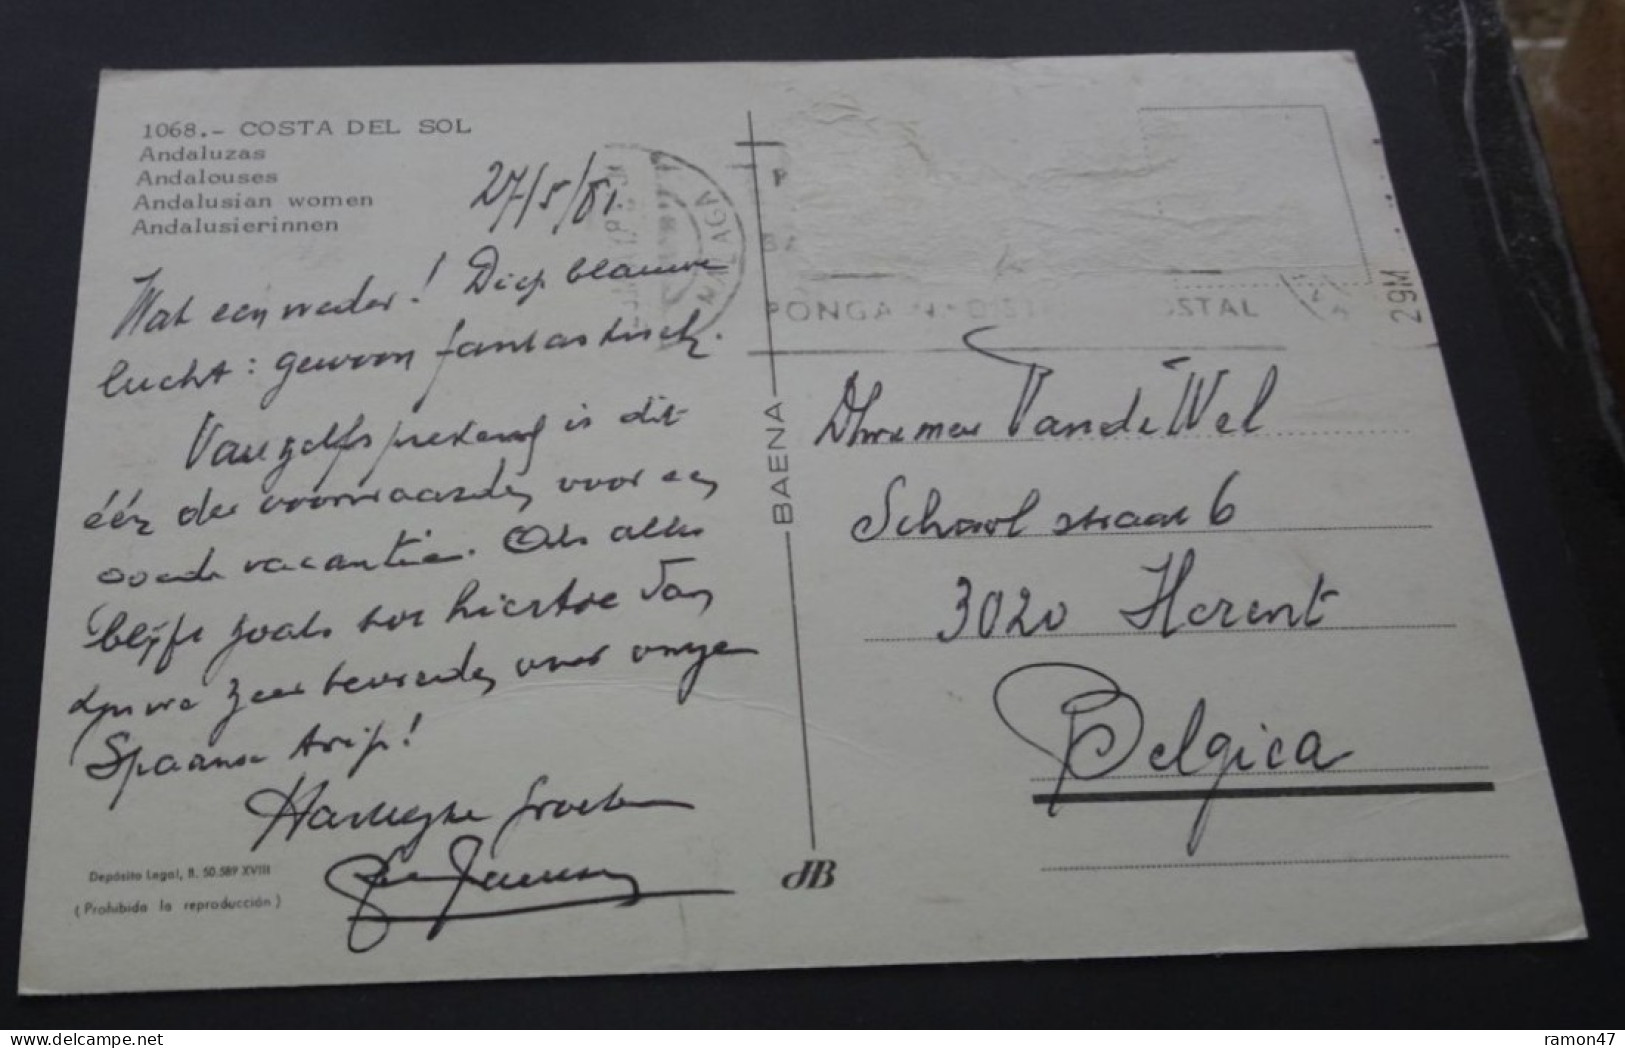 1068.- COSTA DEL SOL
Andaluzas
Andalouses
Andalusian women
Andalusierinnen
27/5/81.
Wat een weder! Diep blauwe
lucht: gewoon fantastisch.
Vanzelfsprekend is dit
één der voorwaarden voor een
goede vacantie. Als alles
blijft zoals tot hiertoe dan
zijn we zeer tevreden over onze
Spaanse trip!
Hartelijke Groeten
Depósito Legal, B. 50.589 XVIII
(Prohibida la reproducción)
MALAGA
BAENA
JB
PONGA DIST POSTAL
29M
Dhr en mev Van de Wel
Schoolstraat 6
3020 Herent
Belgica
ramon47